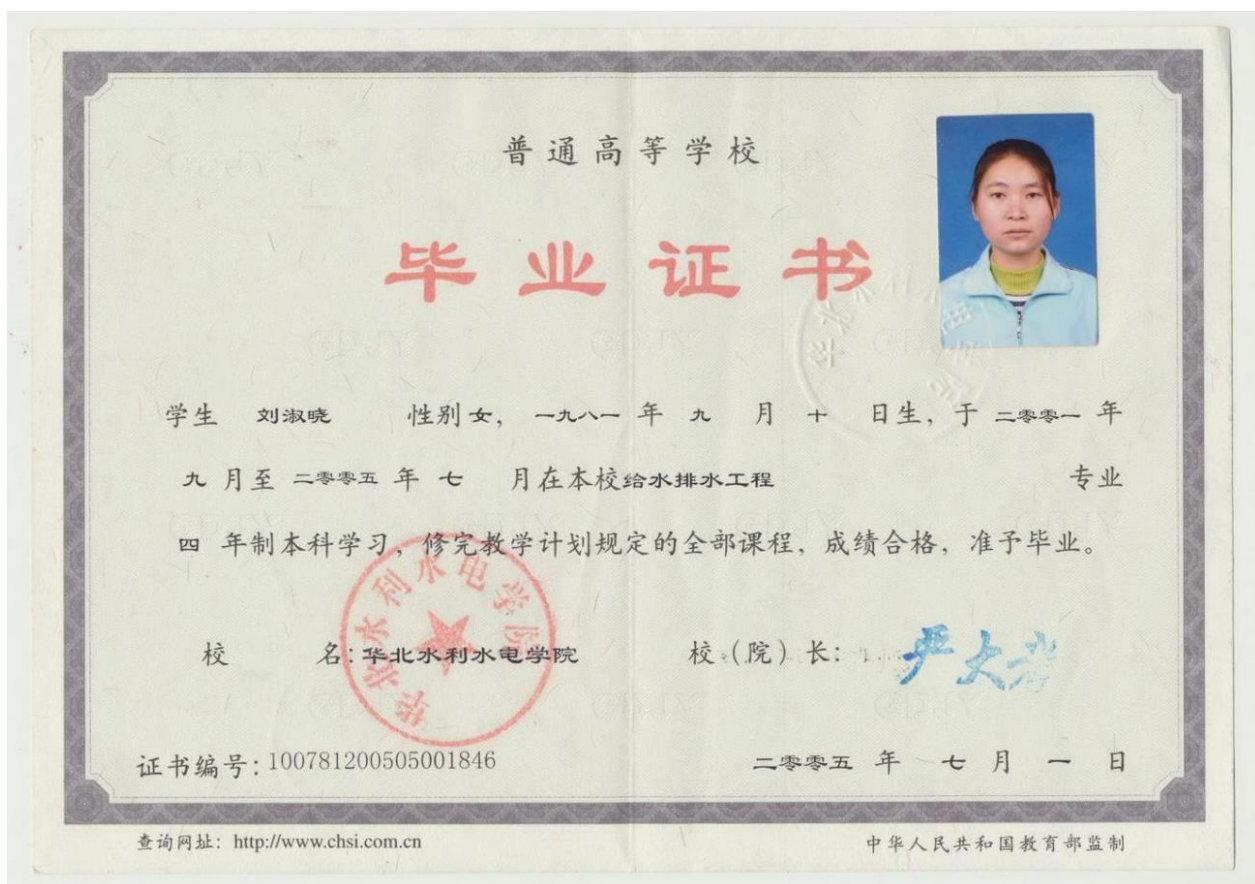 普通高等学校
毕业证书
学生 刘淑晓 性别 女, 一九八一 年 九 月 十 日生, 于 二零零一 年
九 月至 二零零五 年 七 月在本校 给水排水工程 专业
四 年制本科学习, 修完教学计划规定的全部课程, 成绩合格, 准予毕业。
华北水利水电学院
校 名: 华北水利水电学院 校(院)长: 严大考
证书编号: 100781200505001846 二零零五 年 七 月 一 日
查询网址: http://www.chsi.com.cn 中华人民共和国教育部监制